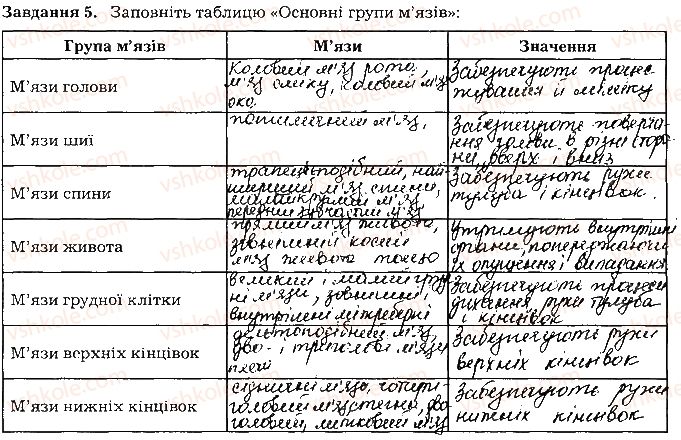 Завдання 5. Заповніть таблицю «Основні групи м’язів»:
Група м’язів
М’язи
Значення
М’язи голови
Коловий м'яз рота,
м'яз сміху, коловий м'яз
ока
Забезпечують процес
жування й міміку
М’язи шиї
потиличний м'яз,
Забезпечують повертан
ня голови в різні сторо
ни, вверх і вниз
М’язи спини
трапецієподібний, най
ширший м'яз спини,
м'яз
передній зубчастий м'яз
Забезпечують рухи
тулуба і кінцівок.
М’язи живота
прямий м'яз живота,
зовнішній косий
м'яз живота
Утримують внутрішні
органи, попереджаючи
їх опущення і випадання
М’язи грудної клітки
великий і малий груд
ні м'язи, зовнішні,
внутрішні міжреберні
Забезпечують процеси
дихання, рухи тулуба
і кінцівок
М’язи верхніх кінцівок
дельтоподібний м'яз,
дво- і триголові м'язи
плеч
Забезпечують рухи
верхніх кінцівок
М’язи нижніх кінцівок
сідничні м'язи, чотири
головий м'яз стегна, дво
головий, литковий м'яз
Забезпечують рухи
нижніх кінцівок